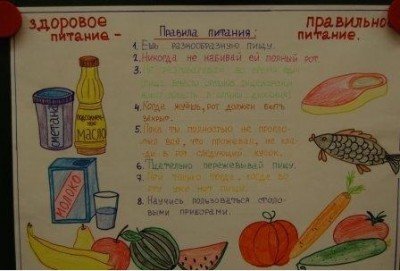 здоровое
питание -
Правила питания:
правильное
питание.
1. Ешь разнообразную пищу.
2. Никогда не набивай ей полный рот.
3.
4. Когда жуёшь, рот должен быть
закрыт.
5. Пока ты полностью не
всё, что прожевал, не
в рот следующий кусок.
6. Тщательно пережевывай пищу.
7. Пей только тогда, когда во
рту уже нет пищи.
8. Научись пользоваться столо-
выми приборами.
сметана
подсолнеч-
ное
масло
молоко